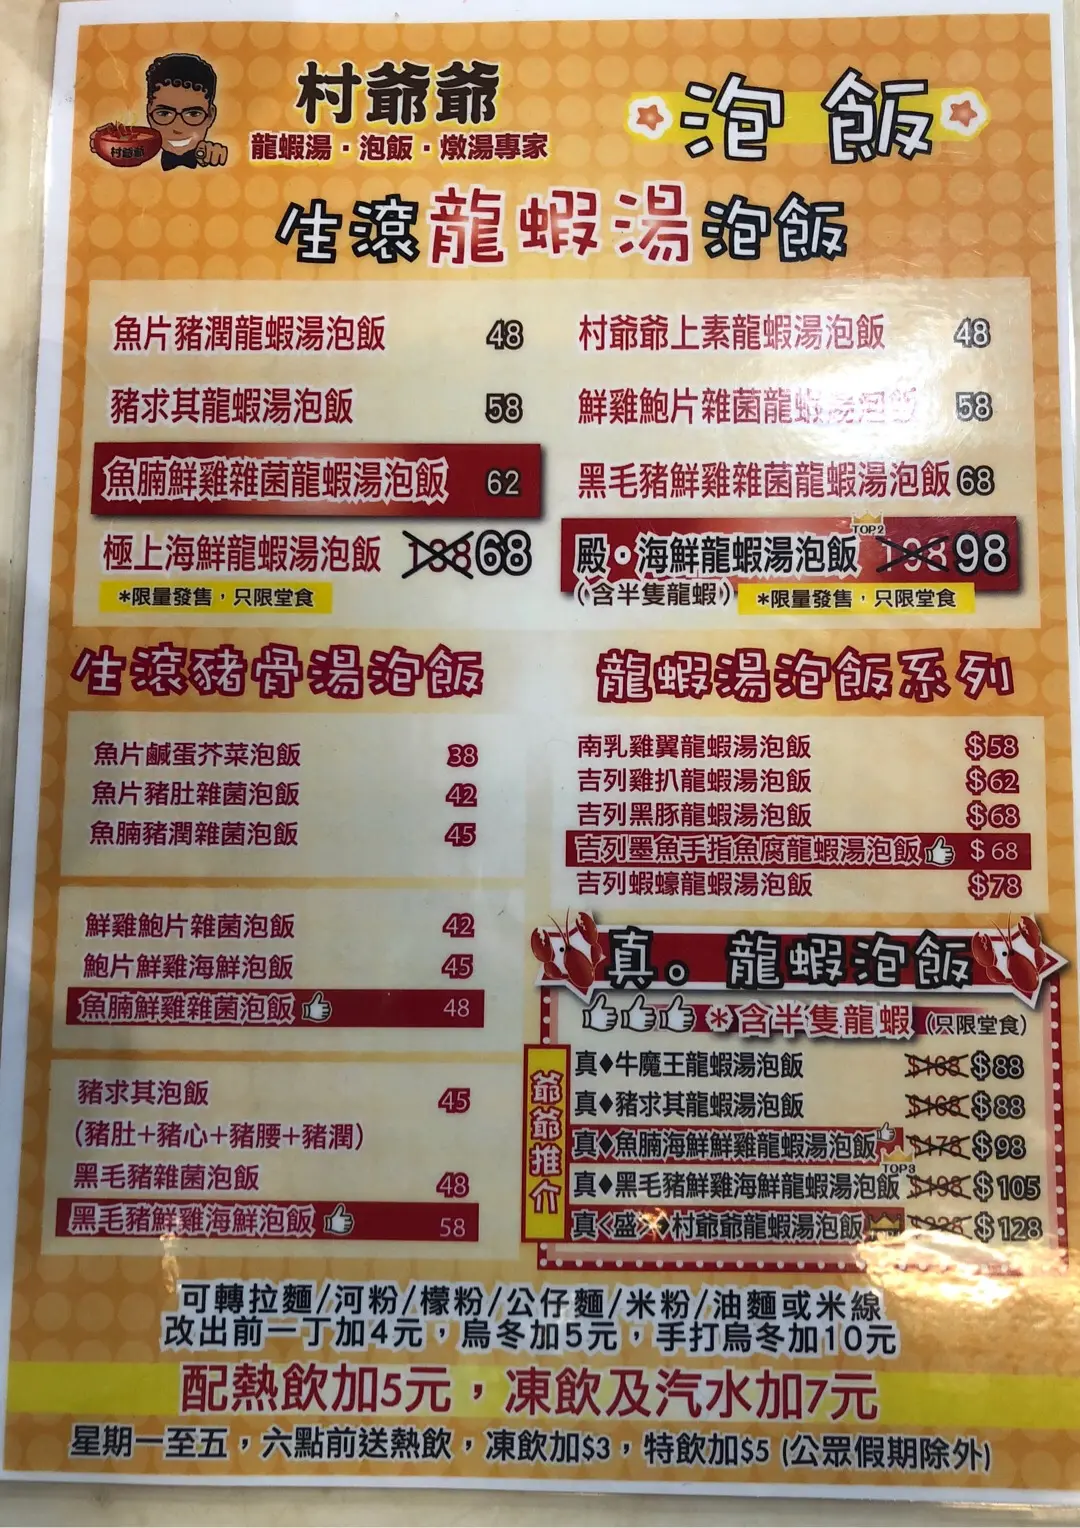 村爺爺
龍蝦湯·泡飯·燉湯專家
村爺爺
泡飯
生滾龍蝦湯泡飯
魚片豬潤龍蝦湯泡飯 48
豬求其龍蝦湯泡飯 58
魚腩鮮雞雜菌龍蝦湯泡飯 62
極上海鮮龍蝦湯泡飯 138 68
*限量發售,只限堂食
村爺爺上素龍蝦湯泡飯 48
鮮雞鮑片雜菌龍蝦湯泡飯 58
黑毛豬鮮雞雜菌龍蝦湯泡飯 68
TOP2
殿•海鮮龍蝦湯泡飯 198 98
(含半隻龍蝦) *限量發售,只限堂食
生滾豬骨湯泡飯
魚片鹹蛋芥菜泡飯 38
魚片豬肚雜菌泡飯 42
魚腩豬潤雜菌泡飯 45
鮮雞鮑片雜菌泡飯 42
鮑片鮮雞海鮮泡飯 45
魚腩鮮雞雜菌泡飯 48
豬求其泡飯 45
(豬肚+豬心+豬腰+豬潤)
黑毛豬雜菌泡飯 48
黑毛豬鮮雞海鮮泡飯 58
龍蝦湯泡飯系列
南乳雞翼龍蝦湯泡飯 $58
吉列雞扒龍蝦湯泡飯 $62
吉列黑豚龍蝦湯泡飯 $68
吉列墨魚手指魚腐龍蝦湯泡飯 $68
吉列蝦蠔龍蝦湯泡飯 $78
真。龍蝦泡飯
*含半隻龍蝦 (只限堂食)
爺爺推介
真♦牛魔王龍蝦湯泡飯 $168 $88
真♦豬求其龍蝦湯泡飯 $168 $88
真♦魚腩海鮮鮮雞龍蝦湯泡飯 $178 $98
TOP3
真♦黑毛豬鮮雞海鮮龍蝦湯泡飯 $198 $105
真<盛>♦村爺爺龍蝦湯泡飯 $228 $128
可轉拉麵/河粉/檬粉/公仔麵/米粉/油麵或米線
改出前一丁加4元,烏冬加5元,手打烏冬加10元
配熱飲加5元,凍飲及汽水加7元
星期一至五,六點前送熱飲,凍飲加$3,特飲加$5 (公眾假期除外)